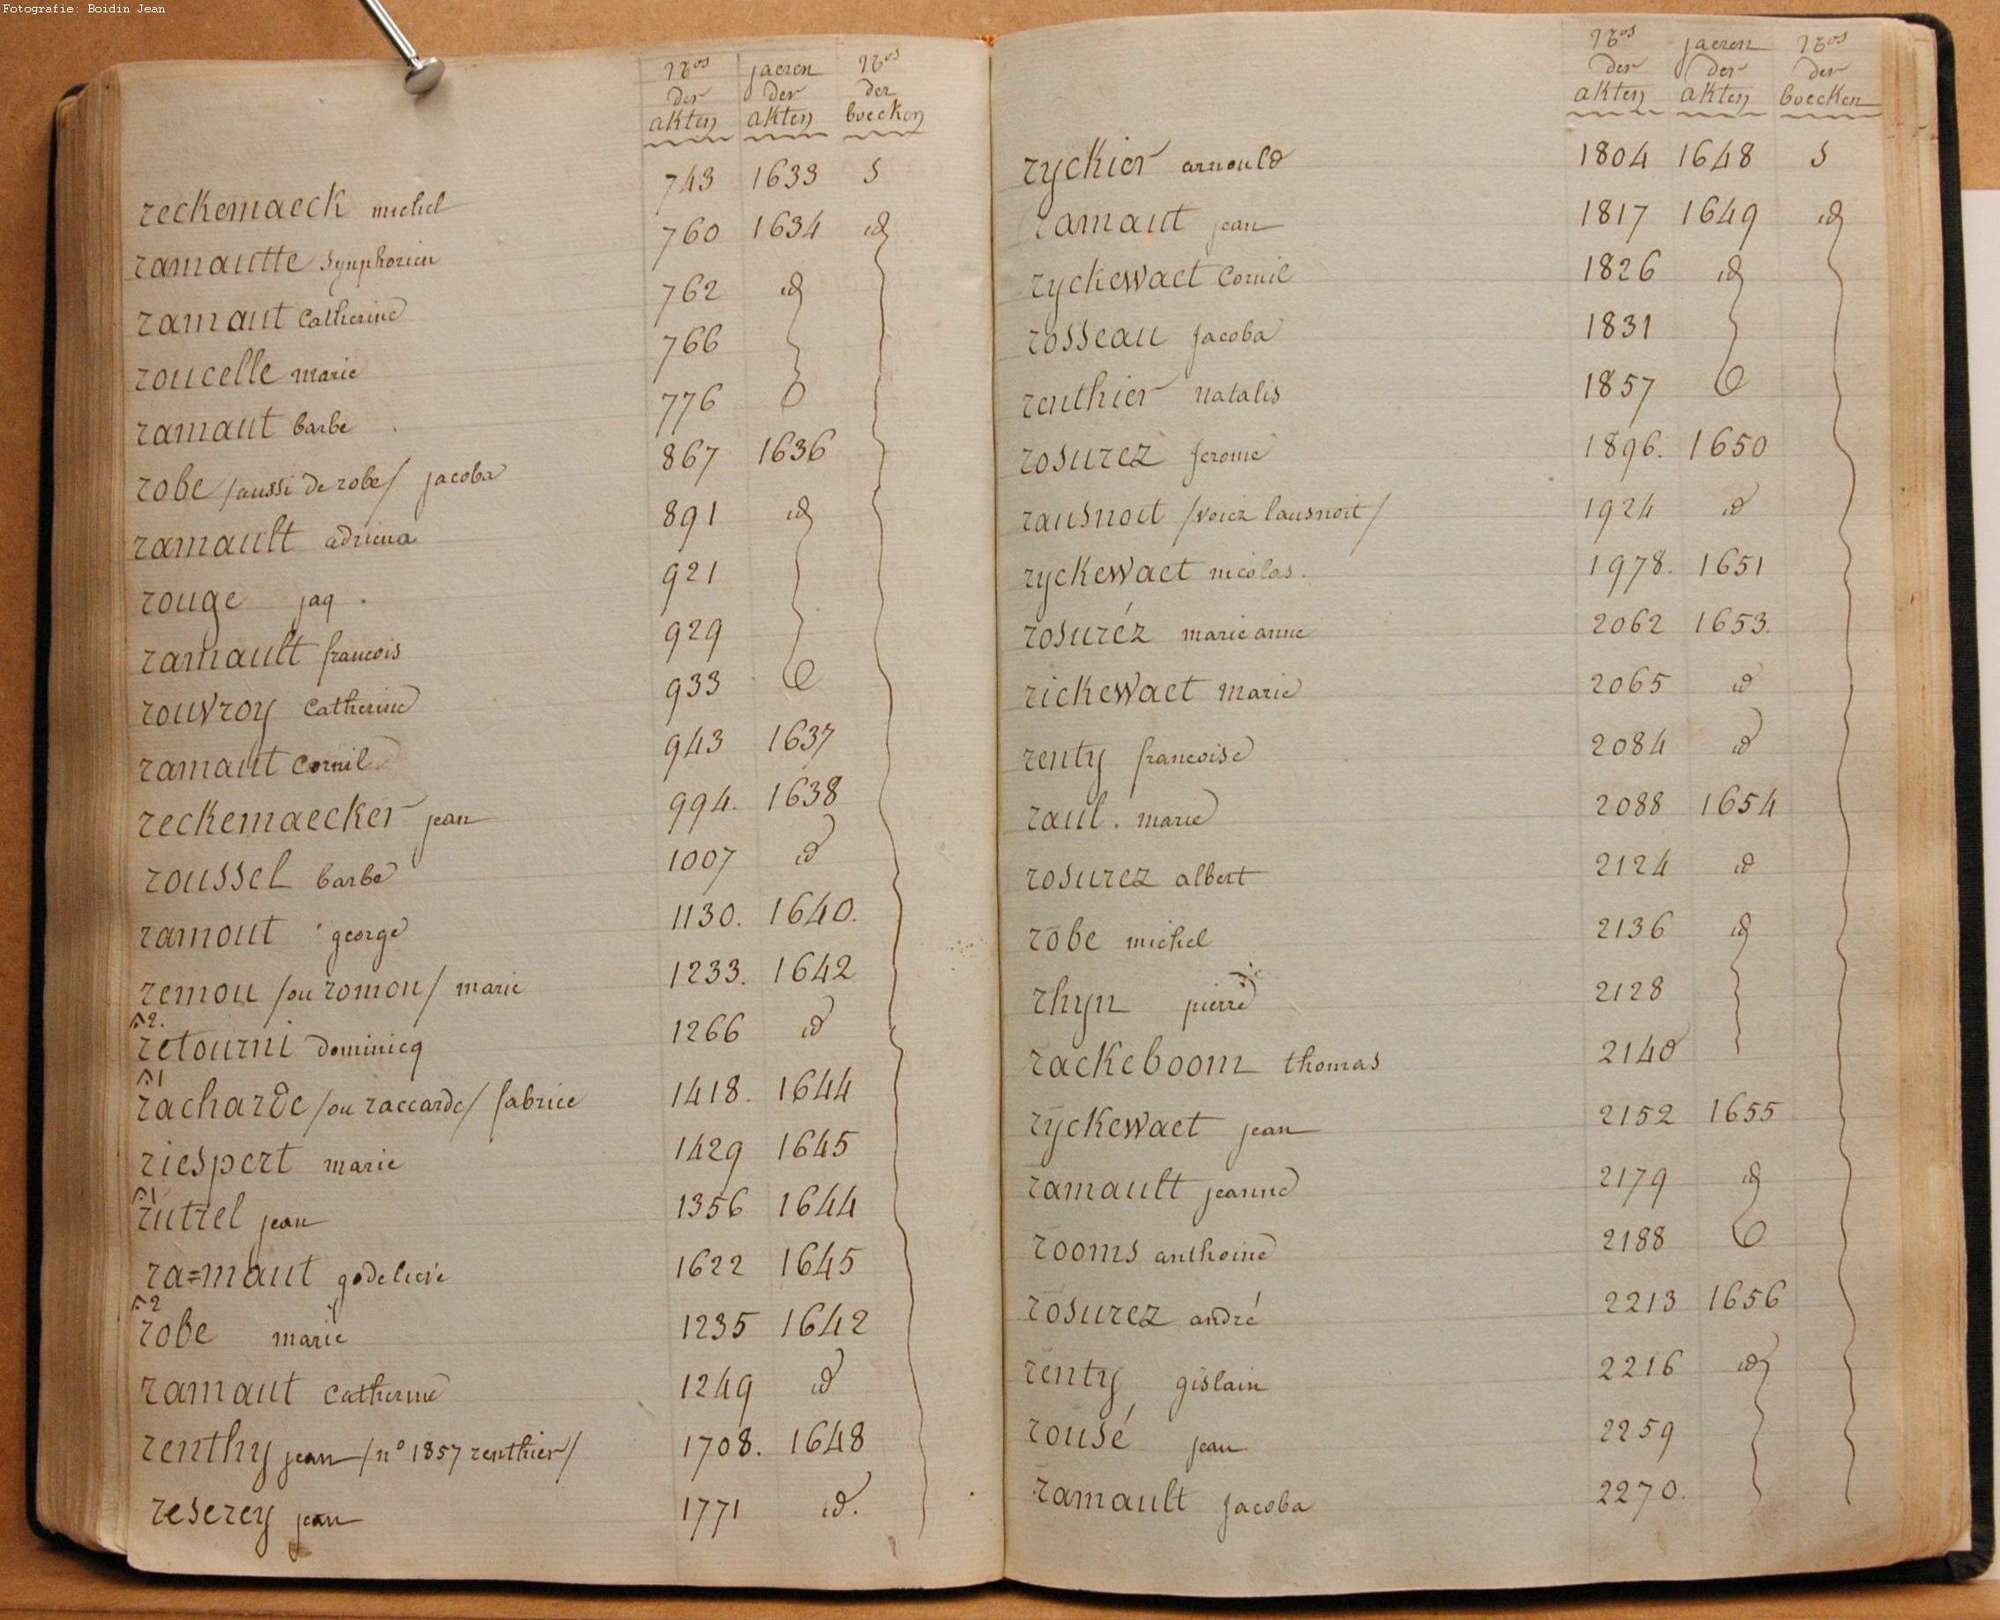 Fotografie: Boidin Jean
Nros jaeren Nros
der der der
akten akten boecken
reckemaeck michel 743 1633 5
ramautte Synphorien 760 1634 id
ramaut Catherine 762 id
roucelle marie 766
ramaut barbe 776
robe /aussi de robe/ jacoba 867 1636
ramault adriena 891 id
rouge jaq. 921
ramault francois 929
rouvroy Catherine 933
ramaut Cornil 943 1637
reckemaecker jean 994. 1638
roussel barbe 1007 id
ramout george 1130. 1640.
remou /ou romon/ marie 1233. 1642
2.
retourni dominicq 1266 id
1
racharde /ou raccarde/ fabrice 1418. 1644
riespert marie 1429 1645
1
rutrel jean 1356 1644
ra=maut godelieve 1622 1645
2
robe marie 1235 1642
ramaut Catherine 1249 id
renthy jean /n° 1857 renthier/ 1708. 1648
reserey jean 1771 id.
Nros jaeren Nros
der der der
akten akten boecken
ryckier arnould 1804 1648 5
ramaut jean 1817 1649 id
ryckewaet Cornil 1826 id
rosseau Jacoba 1831
renthier natalis 1857
rosurez Jerome 1896. 1650
rausnoit /voiez lausnoit/ 1924 id
ryckewaet nicolas. 1978. 1651
rosuréz marie anne 2062 1653.
rickewaet marie 2065 id
renty francoise 2084 id
raul. marie 2088 1654
rosurez albert 2124 id
robe michel 2136 id
rhyn pierre 2128
rackeboom thomas 2140
ryckewaet jean 2152 1655
ramault jeanne 2179 id
rooms anthoine 2188
rosurez andré 2213 1656
renty gislain 2216 id
rousé jean 2259
ramault Jacoba 2270.